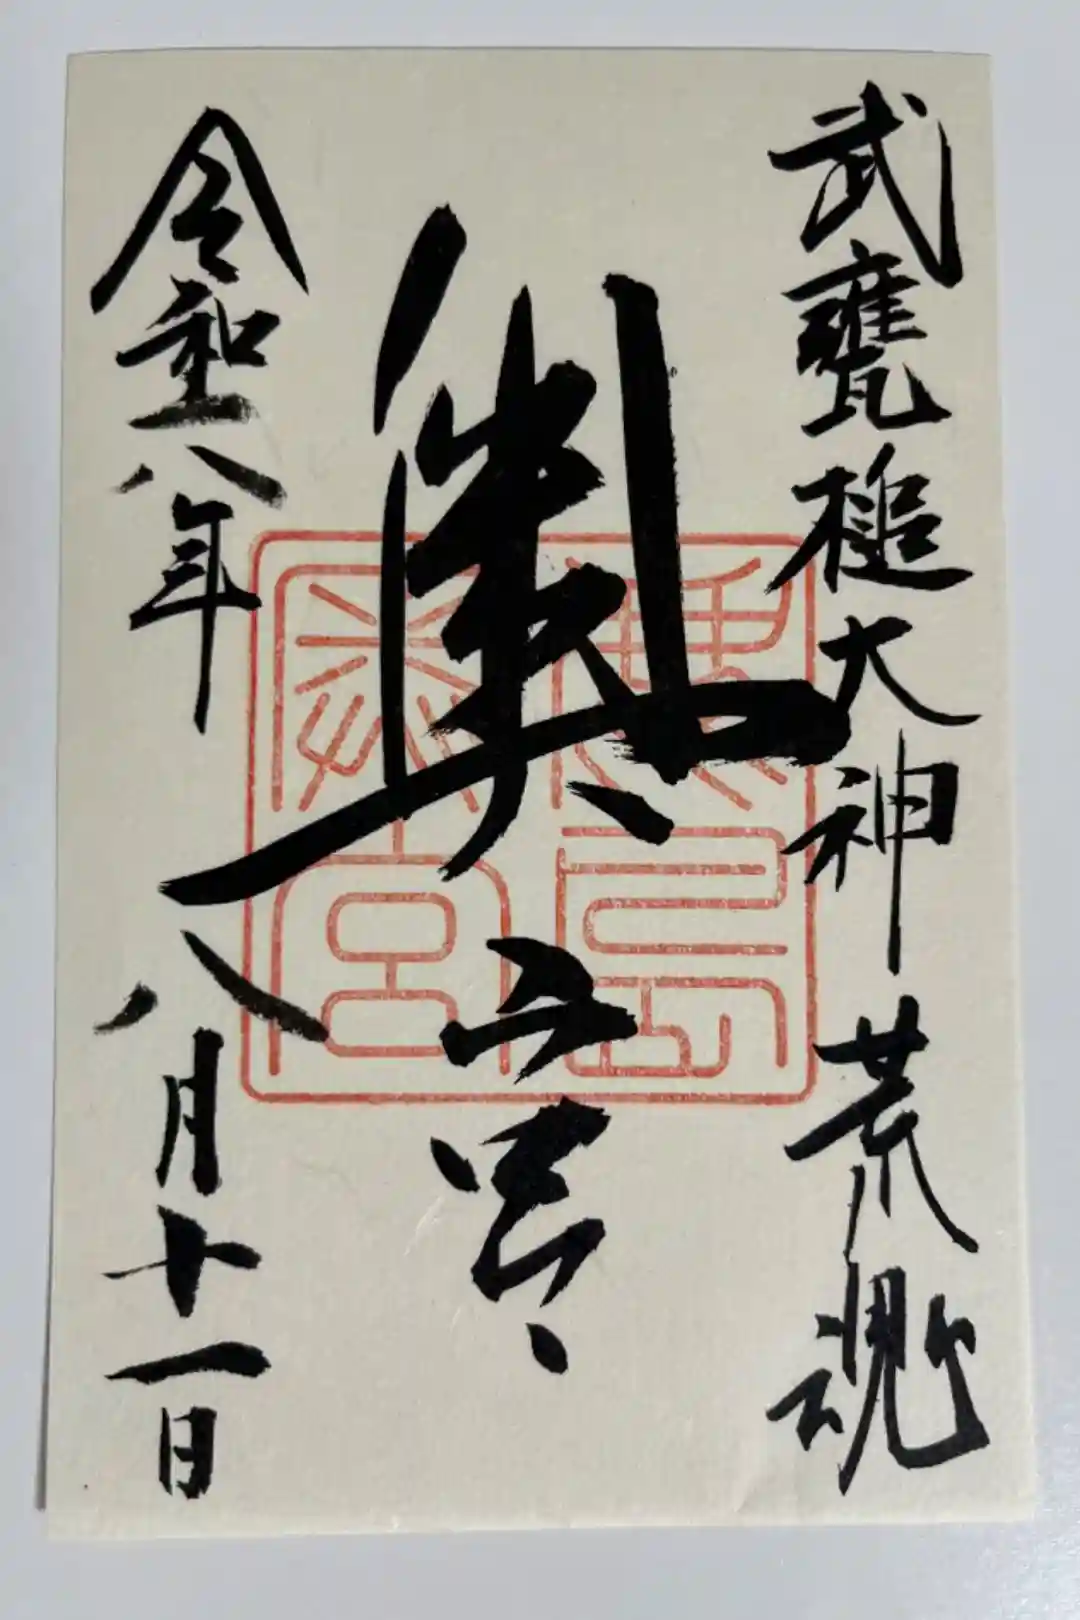 武甕槌大神荒魂
奥宮
令和元年八月十一日
鹿島
奥宮